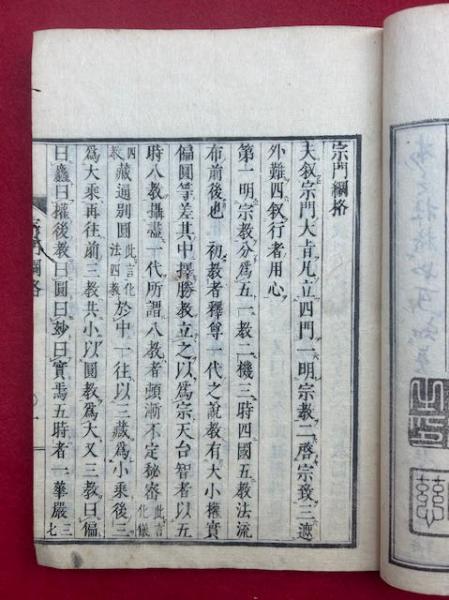 宗門綱格
夫叙宗門大旨凡立四門一明宗教二啓宗致三遮
外難四叙行者用心
第一明宗教分爲五一教二機三時四國五教法流
布前後也　初教者釋尊一代之説教有大小權實
偏圓等差其中擇勝教立之以爲宗天台智者以五
時八教攝盡一代所謂八教者頓漸不定秘密此言化儀
四教藏通別圓此言化法四教於中一往以三藏爲小乘後三
爲大乘再往前三教共小以圓教爲大又三教曰偏
曰麤曰權後教曰圓曰妙曰實焉五時者一華嚴三七
宗門綱格
一